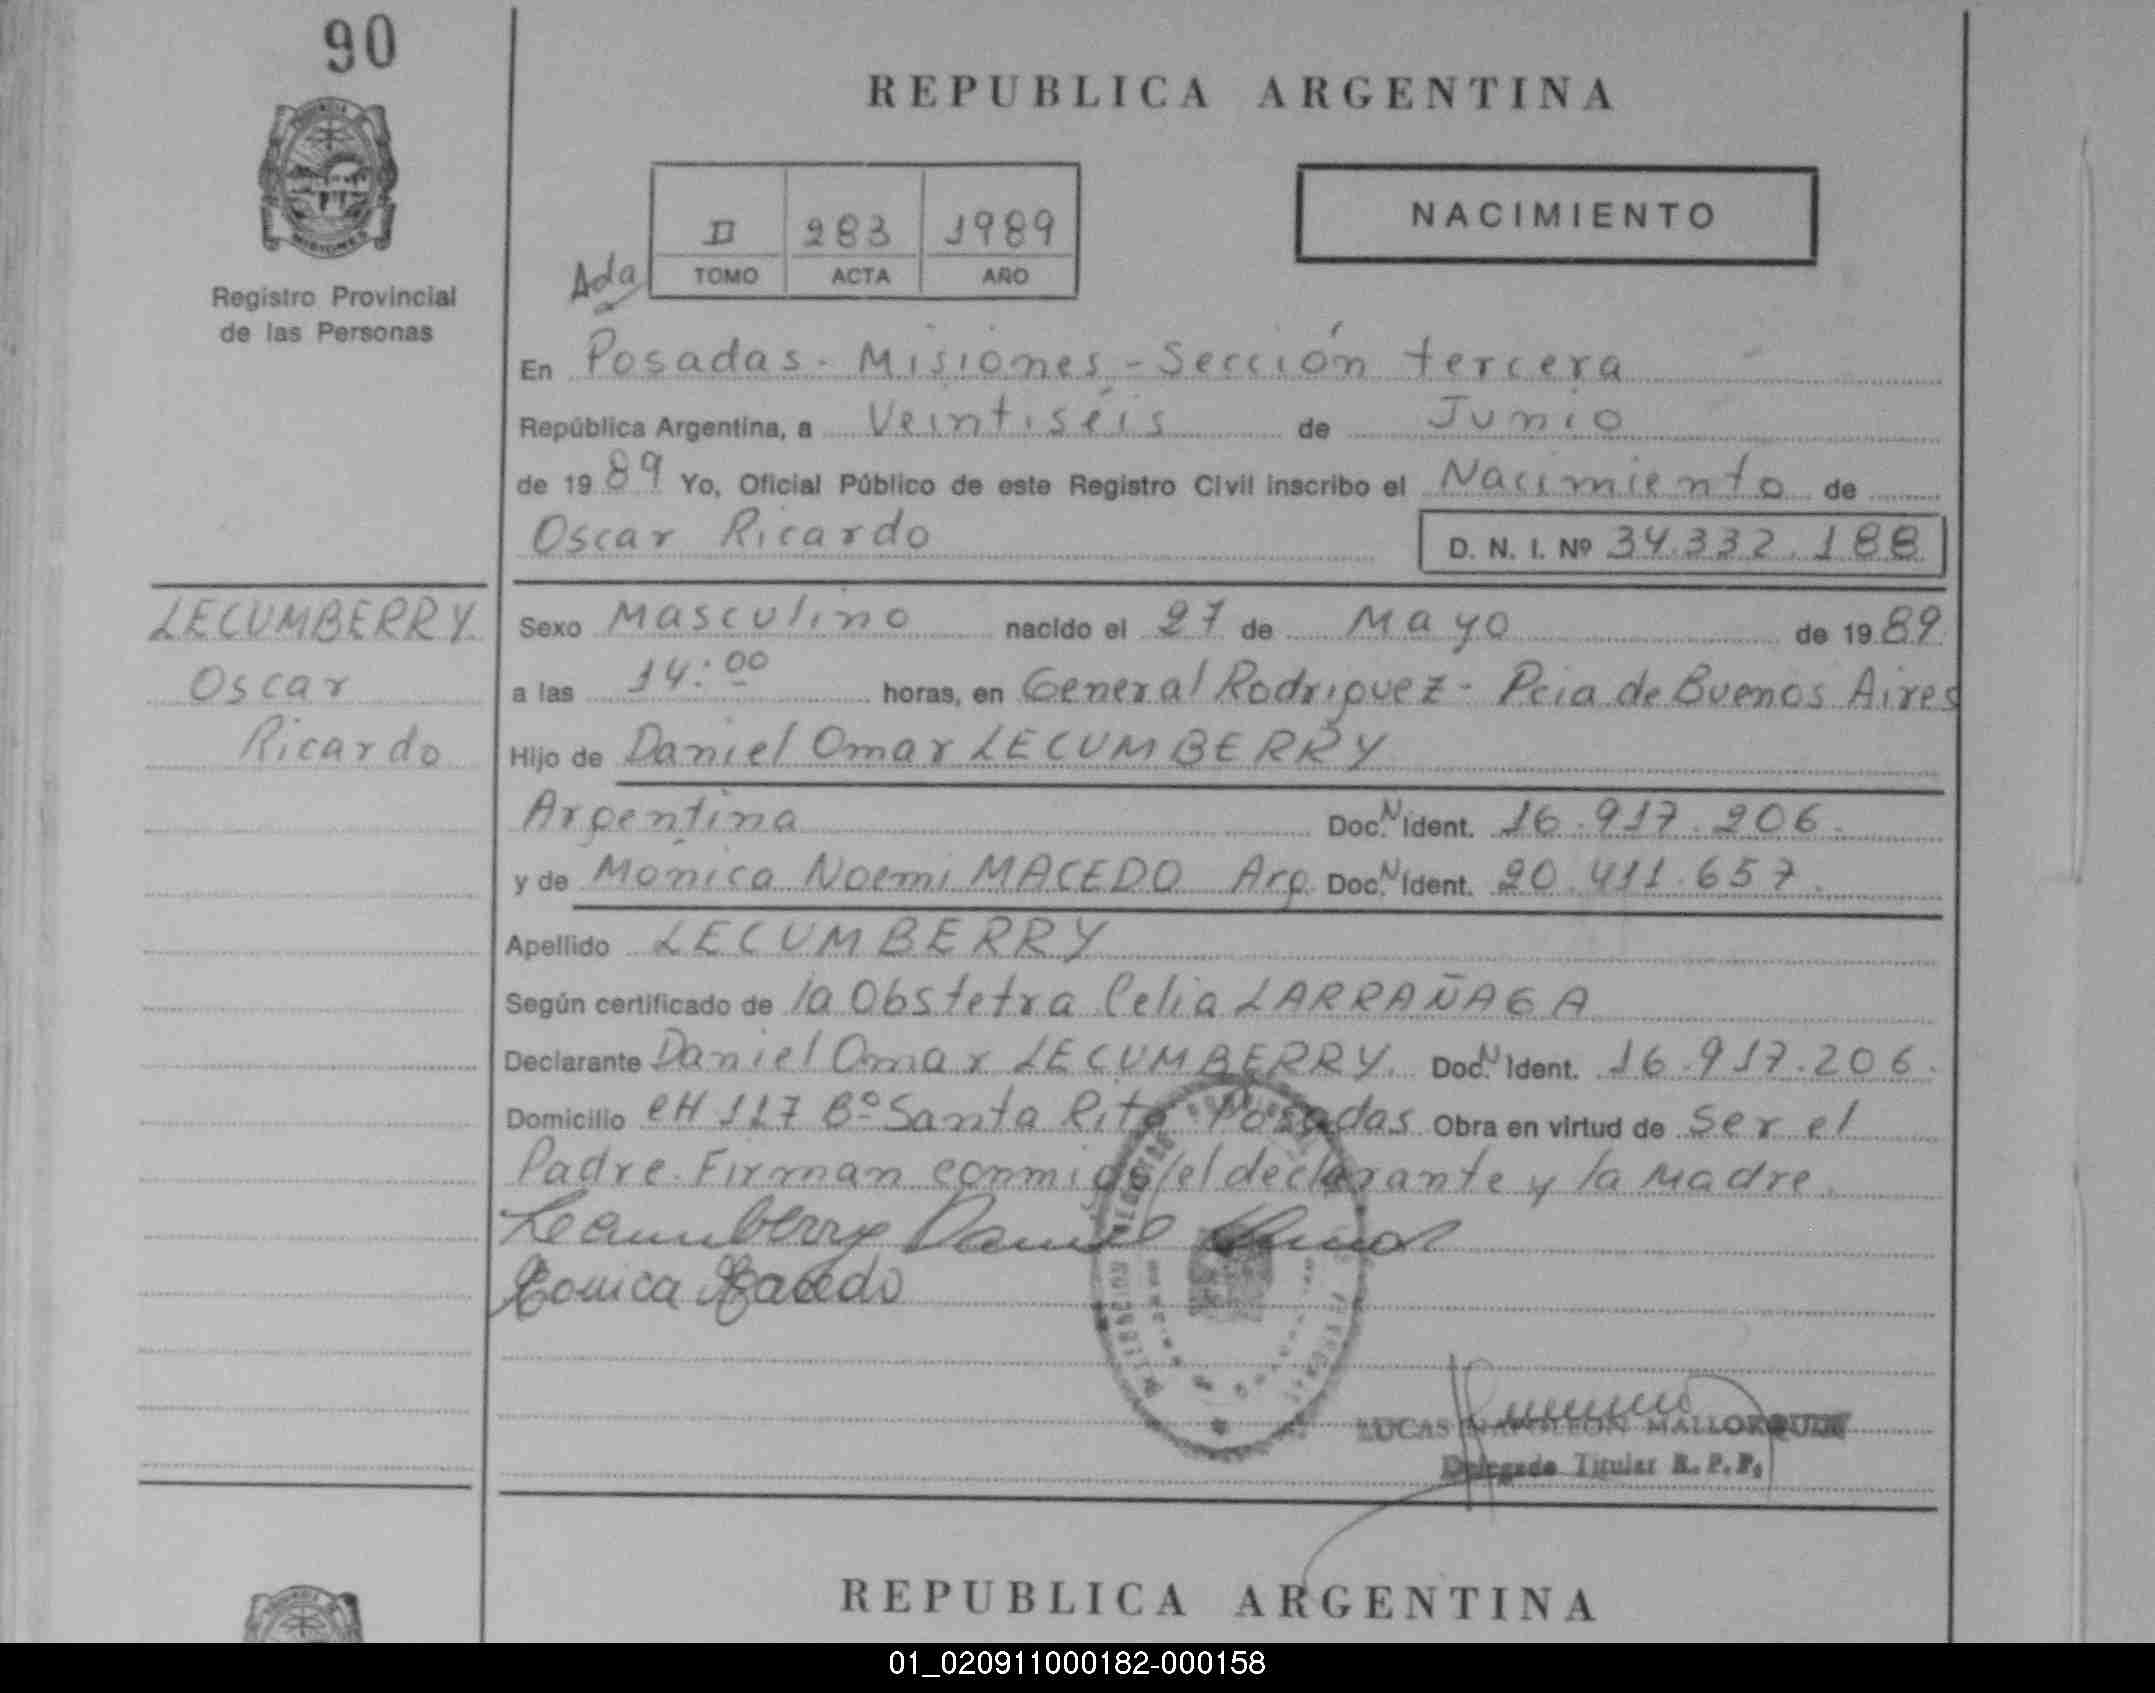 90
REPUBLICA ARGENTINA
MISIONES
Registro Provincial
de las Personas
II 283 1989
TOMO ACTA AÑO
NACIMIENTO
En Posadas - Misiones - Sección tercera
República Argentina, a Veintiséis de Junio
de 1989 Yo, Oficial Público de este Registro Civil inscribo el Nacimiento de
Oscar Ricardo D. N. I. Nº 34.332.188
LECUMBERRY
Oscar
Ricardo
Sexo Masculino nacido el 27 de Mayo de 1989
a las 14:00 horas, en General Rodriguez - Pcia de Buenos Aires
Hijo de Daniel Omar LECUMBERRY
Argentina Doc. N Ident. 16.917.206.
y de Mónica Noemi MACEDO Arg. Doc. N Ident. 20.411.657.
Apellido LECUMBERRY
Según certificado de la Obstetra Celia LARRAÑAGA
Declarante Daniel Omar LECUMBERRY. Doc. N Ident. 16.917.206.
Domicilio CH 117 Bº Santa Rita Posadas Obra en virtud de Ser el
Padre. Firman conmigo el declarante y la Madre.
Lecumberry Daniel Omar
Monica Macedo
LUCAS NAPOLEON
Delegado Titular R. P. P.
REPUBLICA ARGENTINA
01_020911000182-000158